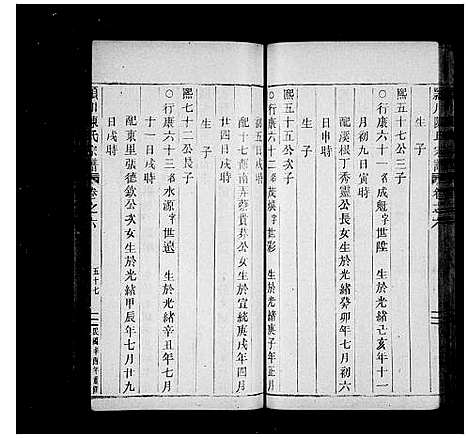 熙五十七公三子
○行康六十一名成魁字世陞 生於光緒己亥年十一
月初九日寅時
配溪根丁秀靈公長女生於光緒癸卯年七月初六
日申時
生 子
熙五十五公次子
○行康六十二名茂嬌字世彩 生於光緒庚子年正月
五日戌時
配十七都南弄蔡貴芬公女生於宣統庚戌年四月
廿四日戌時
生 子
熙七十二公長子
○行康六十三名水源字世遠 生於光緒辛丑年七月
十一日戌時
配東里張德欽公次女生於光緒甲辰年七月廿九
日戌時
潁川陳氏宗譜 卷之六 五十七 民國辛酉年重修